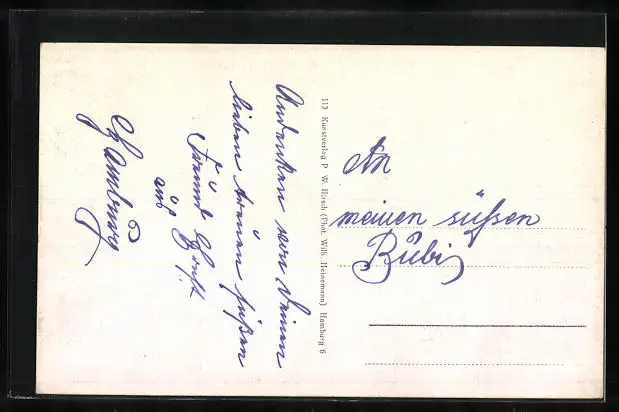 Andenken von Deinen
lieben treuen süßen
Freund Horst!
aus
Hamburg
113 Kunstverlag P. W. Hirsch (Phot. Wilh. Heinemann) Hamburg 6
An
meinen süßen
Bubi